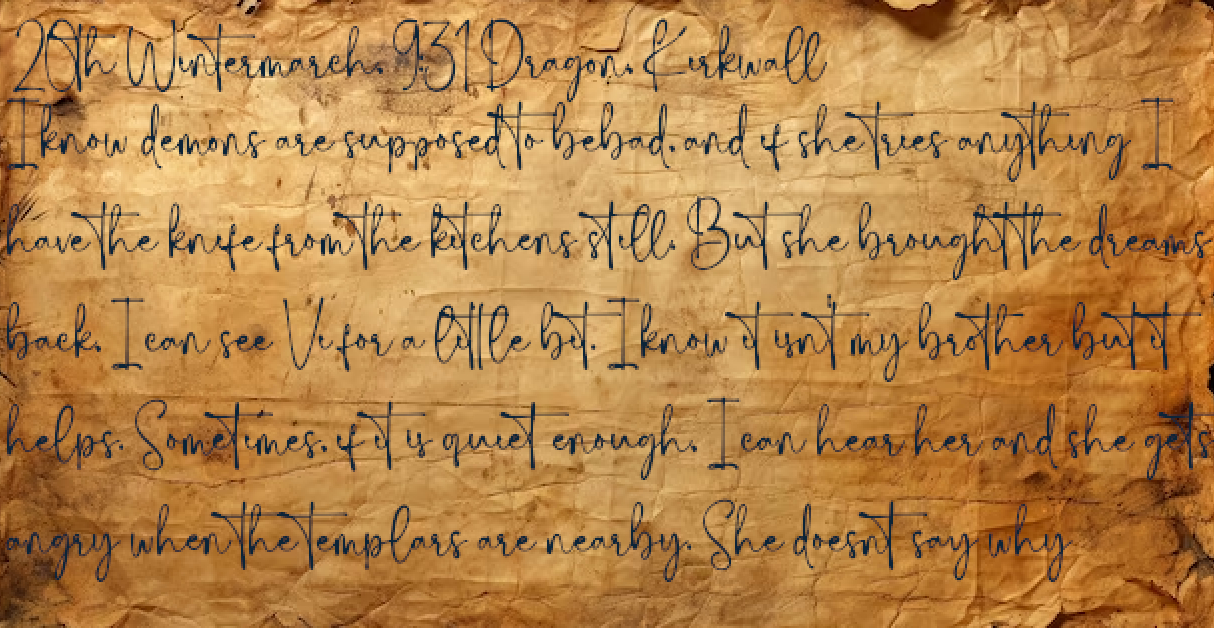 20th Wintermarch. 9:31 Dragon. Kirkwall
I know demons are supposed to be bad. and if she tries anything I
have the knife from the kitchens still. But she brought the dreams
back. I can see Vi. for a little bit. I know it isn't my brother but it
helps. Sometimes. if it is quiet enough. I can hear her and she gets
angry when the templars are nearby. She doesnt say why